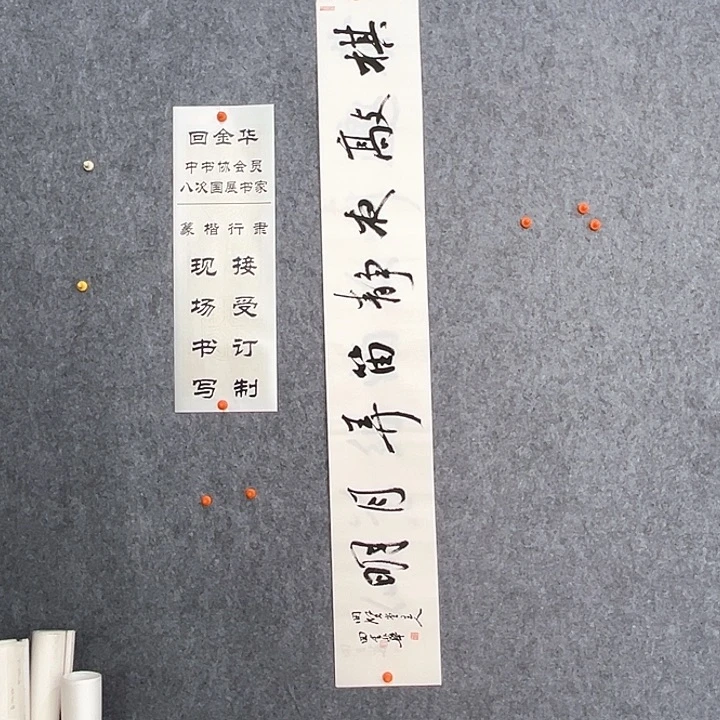 回金华
中书协会员
八次国展书家
篆楷行隶
现场书写
接受订制
棋敲夜静笛弄月明
回金华